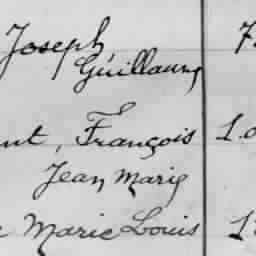 Joseph
Guillaume
François
Jean Marie
Marie Louis